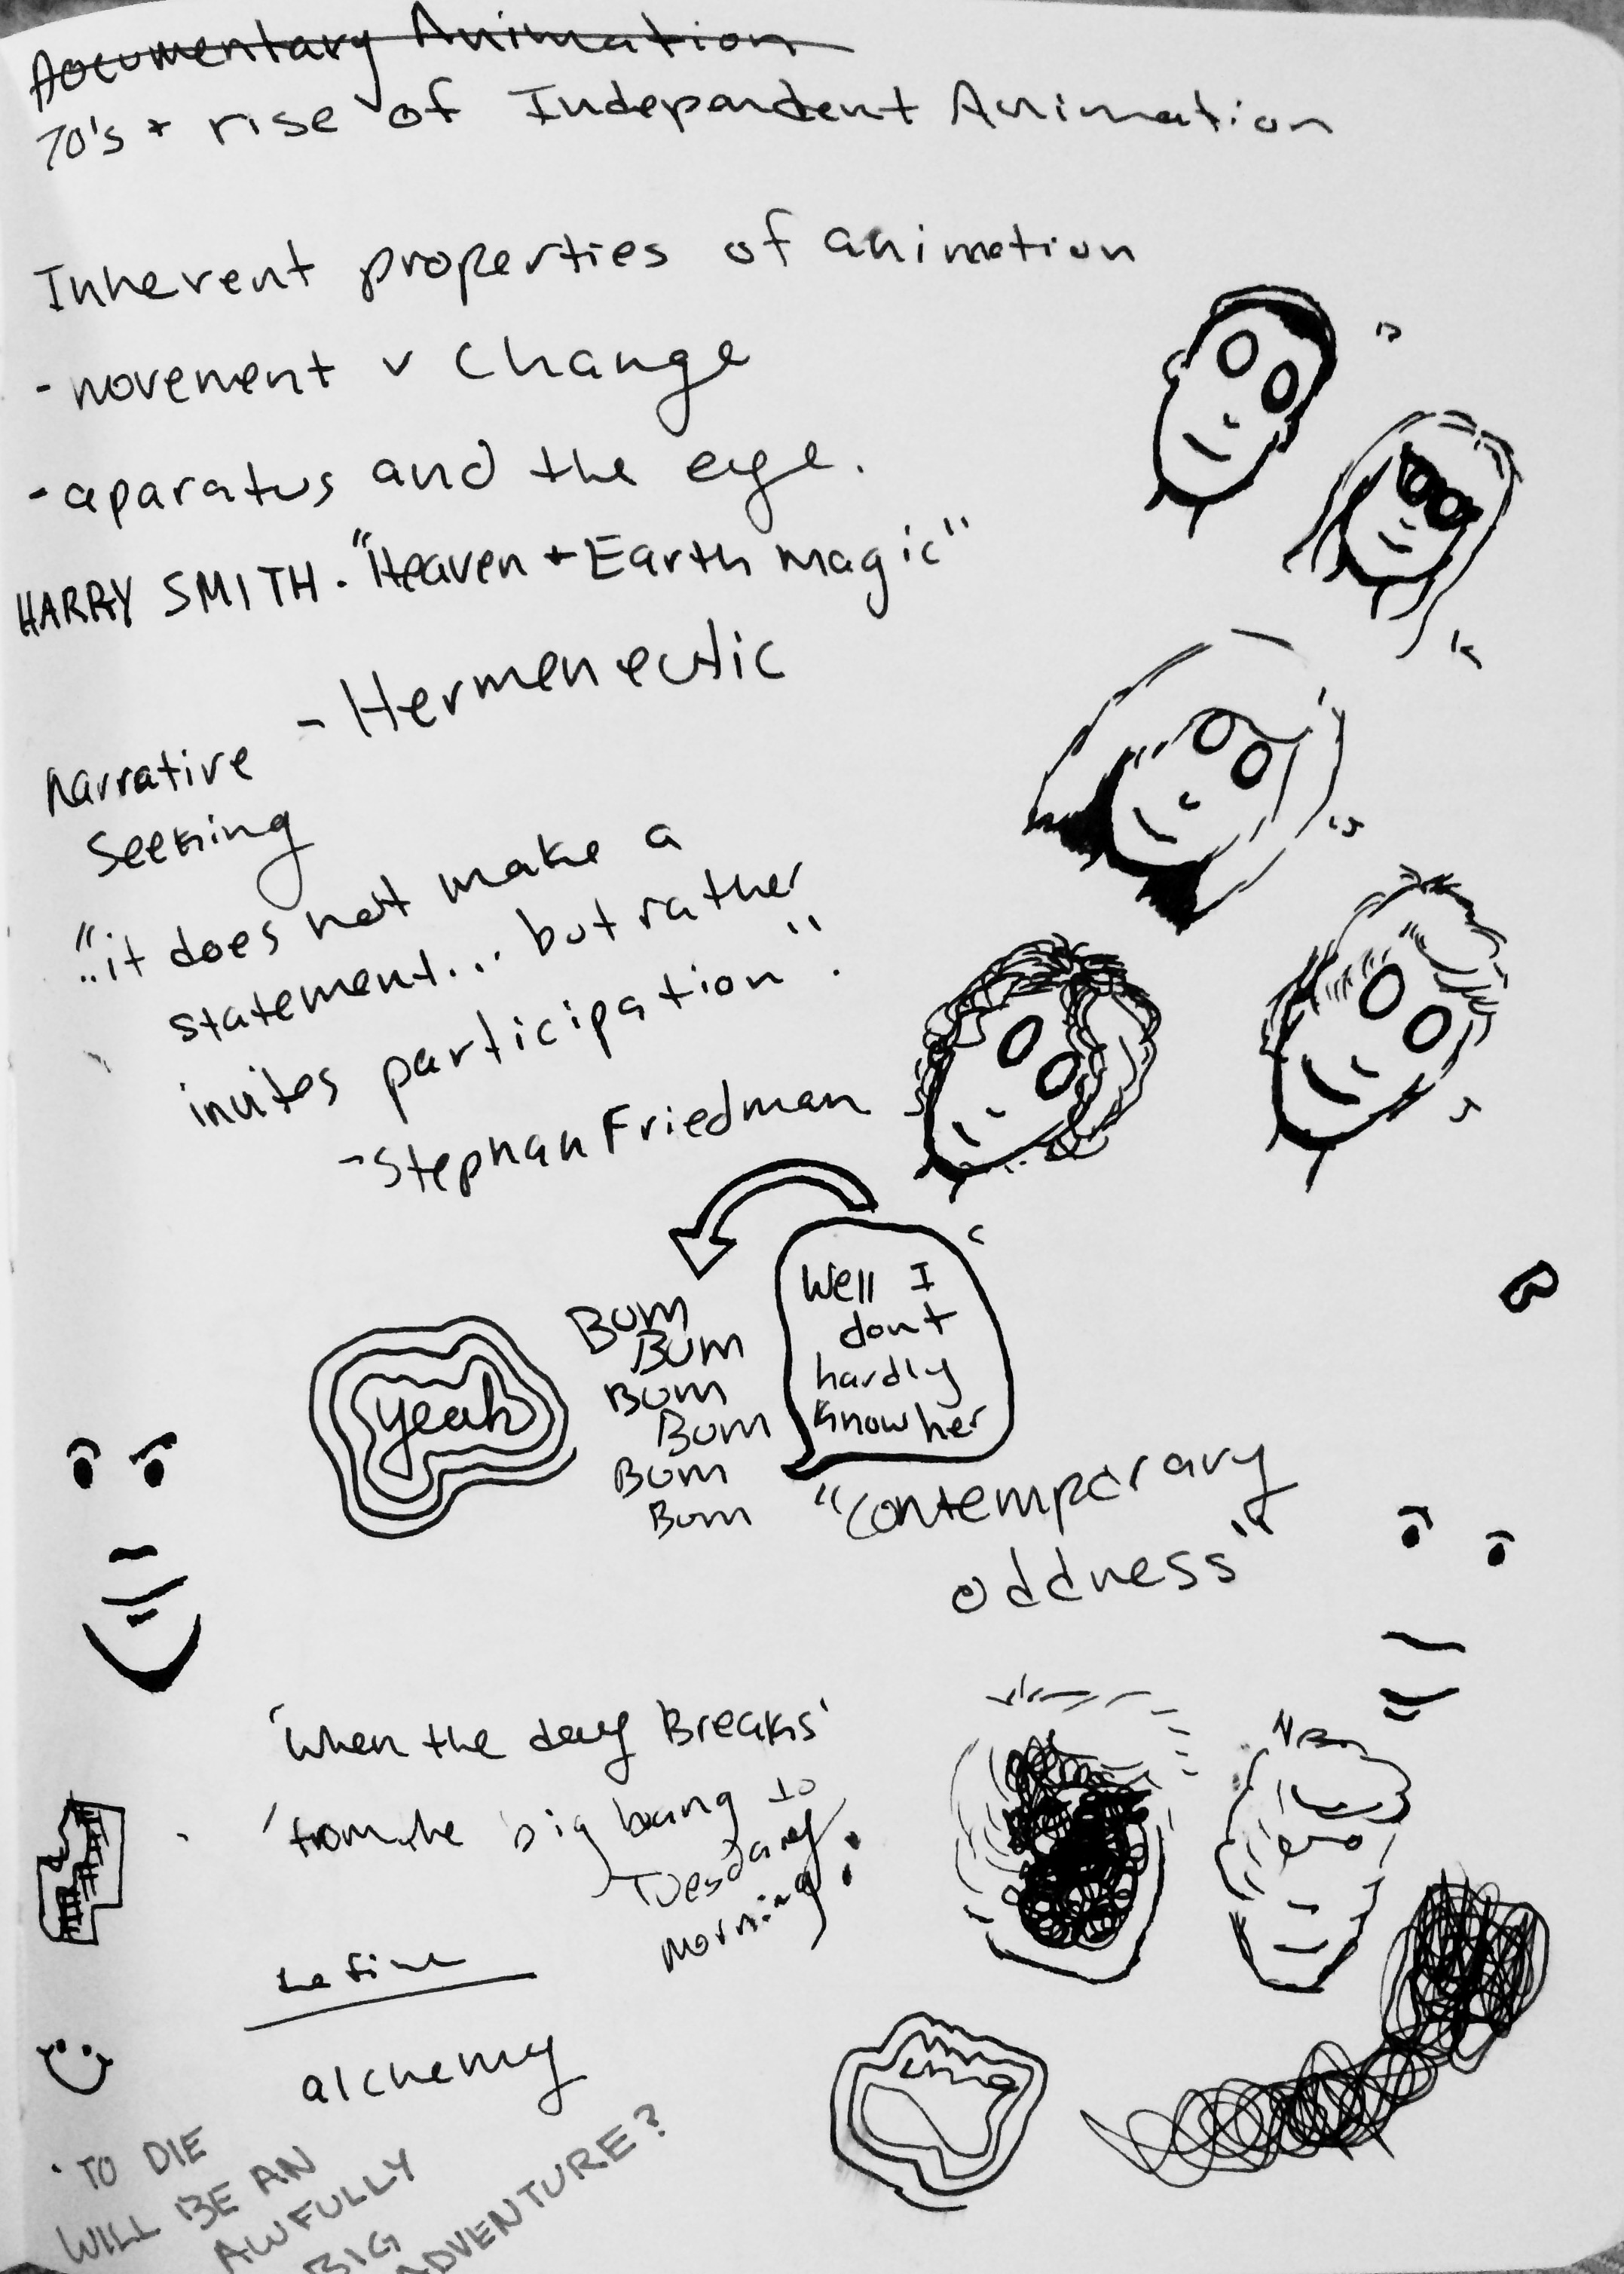 Documentary Animation
70's + rise of Independent Animation
Inherent properties of animation
- movement v Change
- aparatus and the eye.
HARRY SMITH. "Heaven + Earth magic"
- Hermeneutic
Narrative
Seeking
"..it does not make a
statement... but rather
invites participation".
- Stephan Friedman
Well I
dont
hardly
know her
BUM
BUM
BUM
BUM
BUM
BUM
yeah
"Contemporary
oddness"
'when the day Breaks'
'from the big bang to
Tuesday
morning'
alchemy
'TO DIE
WILL BE AN
AWFULLY
BIG
ADVENTURE?